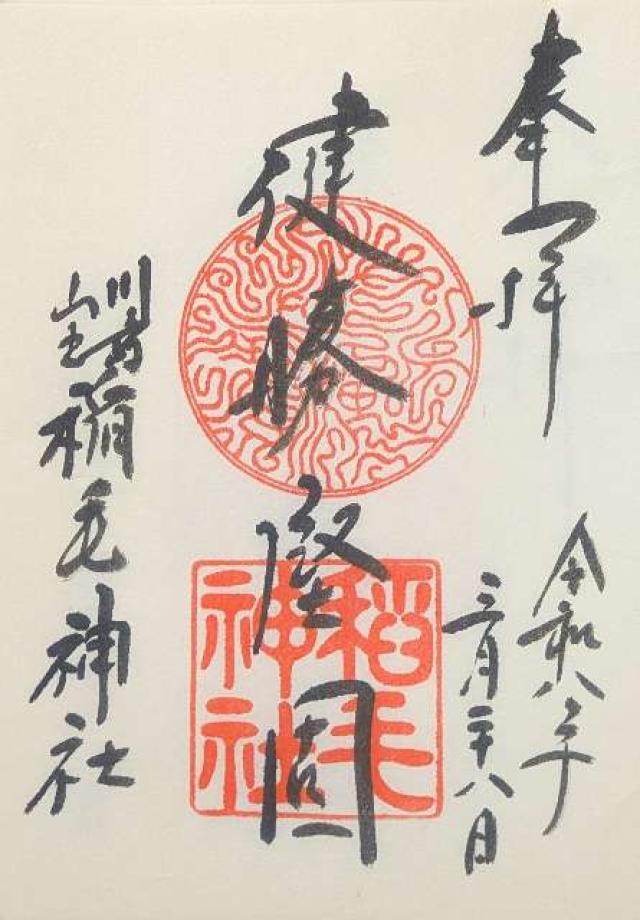 奉拝
令和八年
三月二十八日
健勝堅固
川崎
山王
稲毛神社
稲毛
神社